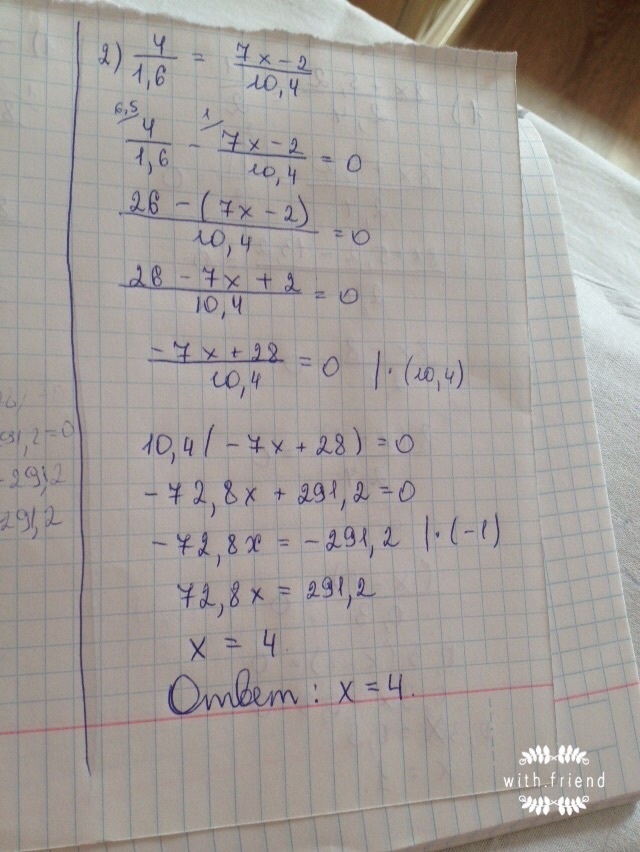 2) 4/1,6 = 7x-2/10,4
6,5/ 4/1,6 - 1/ 7x-2/10,4 = 0
26 - (7x-2)/10,4 = 0
26 - 7x + 2/10,4 = 0
-7x+28/10,4 = 0 |·(10,4)
10,4(-7x+28)=0
-72,8x + 291,2=0
-72,8x = -291,2 |·(-1)
72,8x = 291,2
x = 4.
Ответ: x=4.
=0
-291,2
291,2
with.friend